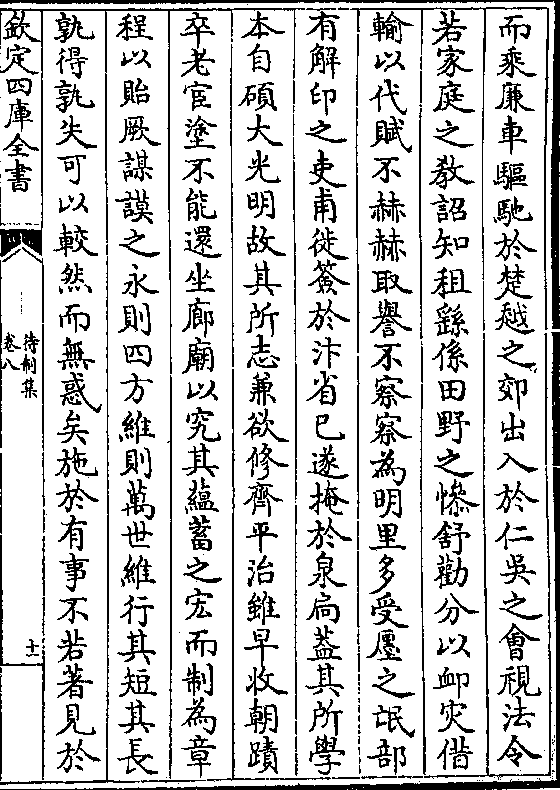 而乘廉車驅馳於楚越之郊出入於仁吳之會視法令
若家庭之教詔知租繇係田野之慘舒勸分以䘏灾借
輸以代賦不赫赫取譽不察察為明里多受廛之氓部
有解印之吏甫徙簽於汴省已遂掩於泉扃蓋其所學
本自碩大光明故其所志兼欲修齊平治雖早收朝蹟
卒老宦塗不能還坐廊廟以究其蘊蓄之宏而制為章
程以貽厥謀謨之永則四方維則萬世維行其短其長
孰得孰失可以較然而無惑矣施於有事不若著見於
欽定四庫全書
待制集
卷八
十一